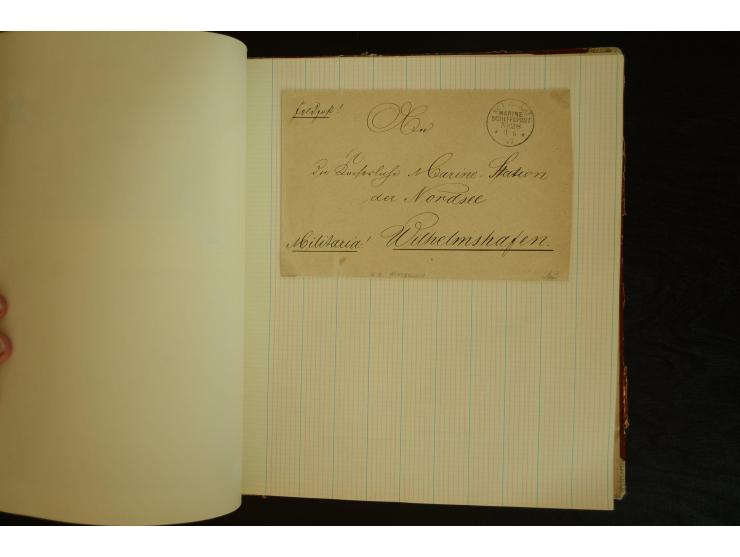 Feldpost!
An
die Kaiserliche Marine-Station
der Nordsee
Militaria! Wilhelmshafen.
MARINE
SCHIFFSPOST